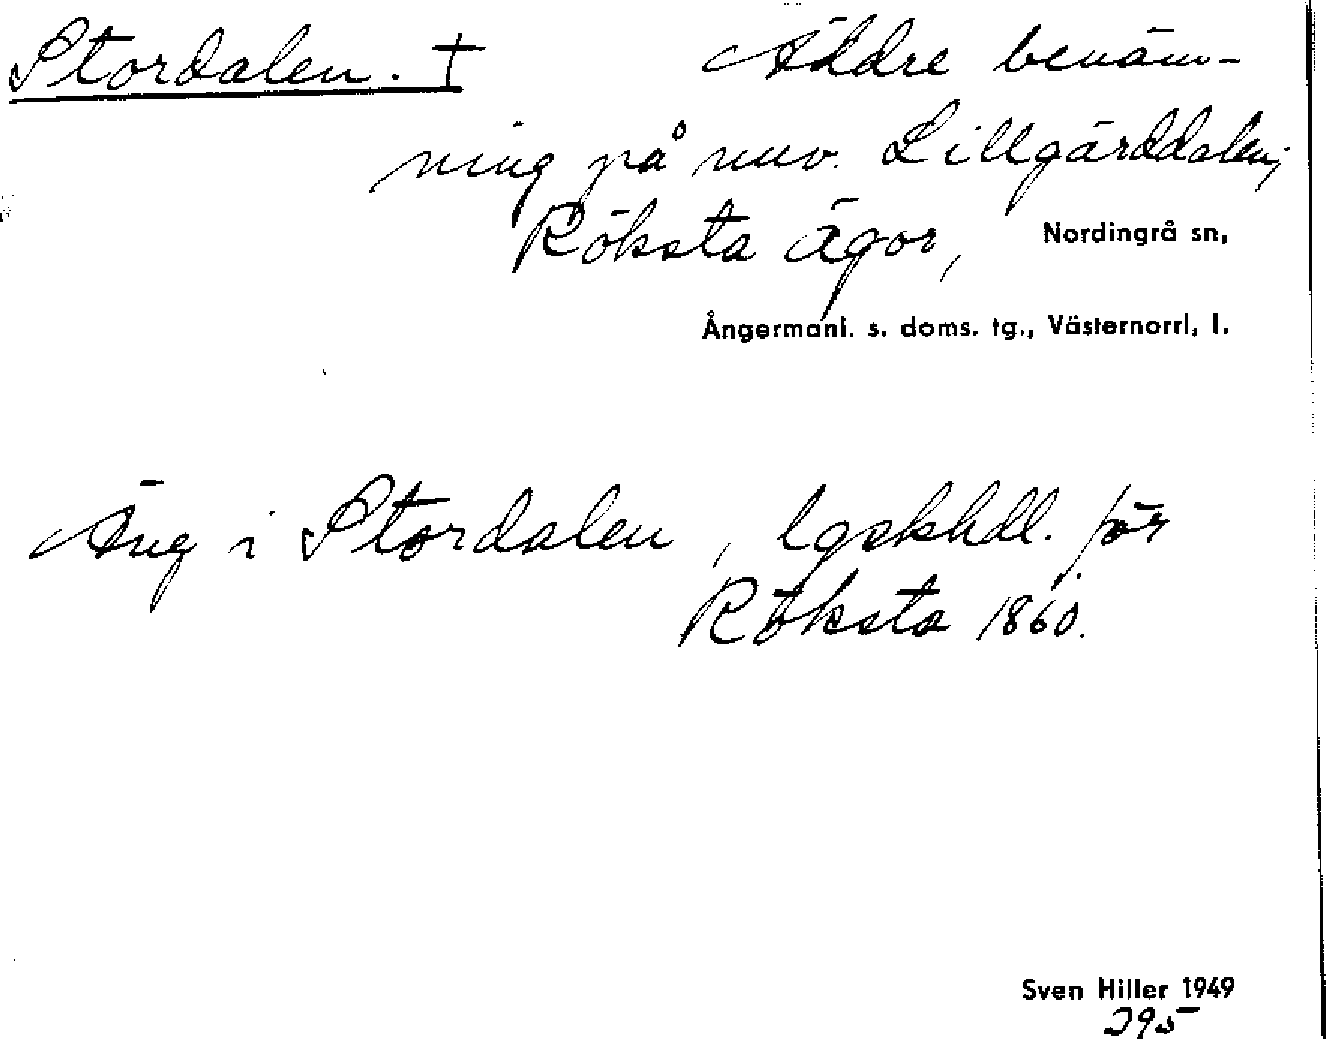 Stordalen. † Äldre benäm-
ning på nuv. Lillgärddalen,
Röksta ägor, Nordingrå sn,
Ångermanl. s. doms. tg., Västernorrl, l.
Äng i Stordalen, lgskhdl. för
Röksta 1860.
Sven Hiller 1949
295